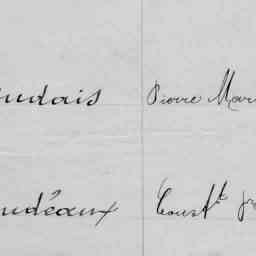 udais Pierre Mar
udéaux Const^t